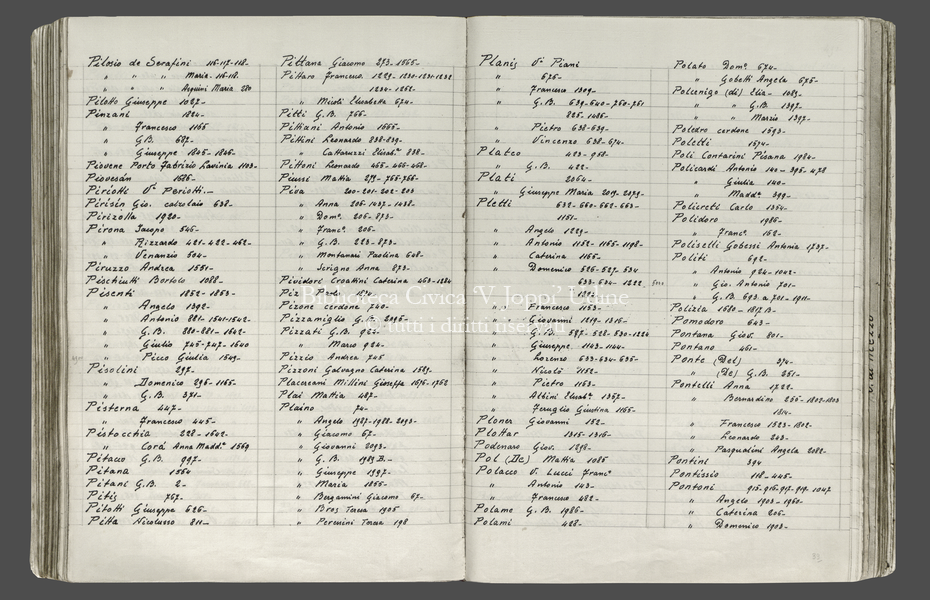 Pilosio de Serafini 116-117-118-
" " " Maria 116-118
" " " Asquini Maria 280
Pilotto Giuseppe 1027-
Pinzani 1824-
" Francesco 1166
" G.B. 687-
" Giuseppe 1845-1846-
Piovene Porto Fabrizio Lavinia 1103-
Piovesan 1626-
Piriotti Vº Periotti-
Pirisin Gio. calzolaio 638-
Pirizolla 1920-
Pirona Jacopo 546-
" Rizzardo 421-422-462-
" Venanzio 504-
Piruzzo Andrea 1551-
Pischiutti Bortolo 1088-
Pisenti 1852-1853-
" Angelo 1392-
" Antonio 881-1541-1542-
" G.B. 880-881-1642-
" Giulio 745-747-1640
" Picco Giulia 1549-
Pisolini 297-
" Domenico 296-1165-
" G.B. 371-
Pisterna 447-
" Francesco 445-
Pistocchia 228-1642-
" Corà Anna Maddª 1569
Pitacco G.B. 997-
Pitana 1554
Pitani G.B. 2-
Pitis 767-
Pitotti Giuseppe 626-
Pitta Nicolusso 811-
Pittana Giacomo 273-1865-
Pittaro Francesco 1229-1230-1231-1232
1234-1262-
" Micoli Elisabetta 674-
Pitti G.B. 766-
Pittiani Antonio 1665-
Pittini Leonardo 838-839-
" Cattaruzzi Elisabª 838-
Pittoni Leonardo 465-466-468-
Piussi Mattia 279-755-756-
Piva 200-201-202-203
" Anna 206-1437-1438-
" Domº. 205-873-
" Francº. 205-
" G.B. 223-873-
" Montanari Paolina 608-
" Serigno Anna 873-
Pividori Croattini Caterina 463-1284
Pizone cerdone 760-
Pizzamiglio G.B. 2096-
Pizzati G.B.
" Marco 924-
Pizzio Andrea 745
Pizzoni Galvagno Caterina 1589-
Placereani Millini Giuseppe 1676-1762
Plai Mattia 487-
Plaino 74-
" Angelo 1987-1988-2093-
" Giacomo 67-
" Giovanni 2093-
" G.B. 1989 B.-
" Giuseppe 1997-
" Maria 1855-
" Bergamini Giacomo 67-
" Bros Teresa 1905
" Peressini Teresa 198
Planis Vº Piani
" 675-
" Francesco 1309-
" G.B. 639-640-750-751
825-1086-
" Pietro 638-639-
" Vincenzo 638-674-
Plateo 423-968-
" G.B. 422-
Plati 2064-
" Giuseppe Maria 2019-2079-
Pletti 632-660-662-663-
1151-
" Angelo 1229-
" Antonio 1152-1165-1198-
" Caterina 1165-
" Domenico 526-527-534
633-634-1222
" Francesco 1153-
" Giovanni 1219-1316-
" G.B. 527-528-530-1224
" Giuseppe 1143-1144-
" Lorenzo 633-634-635-
" Nicolò 1152-
" Pietro 1163-
" Albini Elisabª. 1357-
" Feruglio Giustina 1165-
Ploner Giovanni 152-
Plottar 1315-1316-
Podenaro Giov. 1298-
Pol (De) Mattia 1085
Polacco V. Lucci Francº
" Antonio 143-
" Francesco 482-
Polame G.B. 1986-
Polami 428-
Polato Domº. 674-
" Gobetti Angela 675-
Polcenigo (di) Elia- 1083-
" " G.B. 1397-
" " Marzio 1397-
Poledro cerdone 1593-
Poletti 1574-
Poli Contarini Pisana 1984-
Policardi Antonio 140-395-478
" Giulia 140-
" Maddª. 399-
Policreti Carlo 1354-
Polidoro 1986-
" Francº. 162-
Poliselli Gobessi Antonia 1737-
Politi 692-
" Antonio 924-1042-
" Gio. Antonio 701-
" G.B. 693 a 701-1911-
Polizla 1680-1817 B-
Pomodoro 643-
Pontana Giov. 801-
Pontano 461-
Ponte (Del) 374-
" (De) G.B. 251-
Pontelli Anna 1722-
" Bernardino 256-1802-1803
1814-
" Francesco 1523-1802-
" Leonardo 203-
" Pasqualini Angela 2082-
Pontini 394
Pontissio 118-445-
Pontoni 915-916-917-919-1047
" Angelo 1903-1960-
" Caterina 206-
" Domenico 1903-
Biblioteca Civica 'V. Joppi' Udine
© tutti i diritti riservati